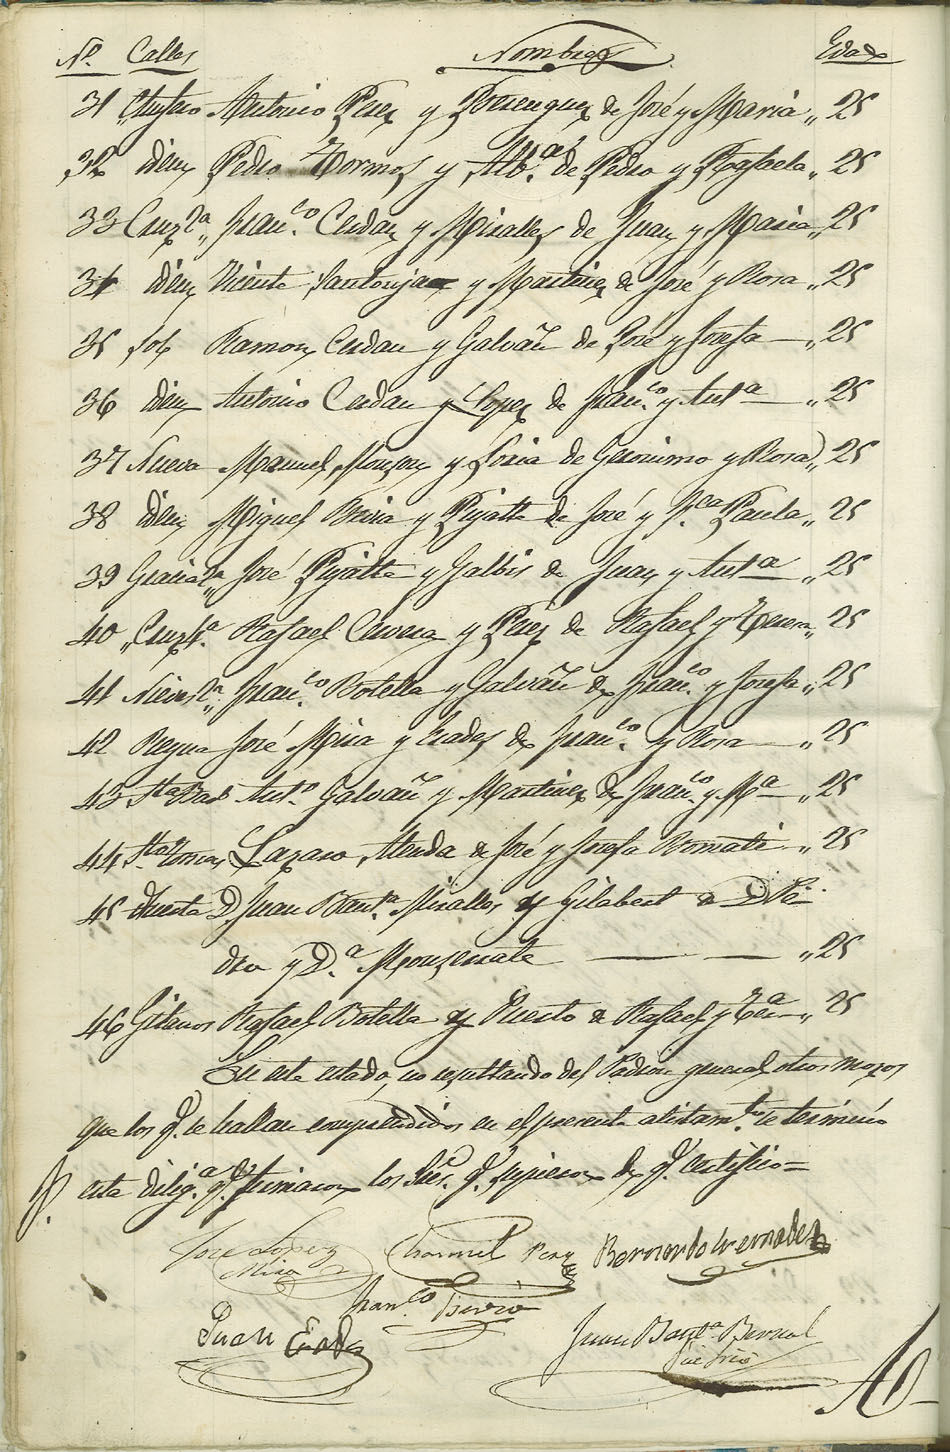 Nº. Calles Nombres Edad
31 Antonio Perez y Berenguer de José y Maria „ 25
32 idem Pedro Tormos y Alb.ª de Pedro y Rafaela „ 25
33 Cruz 2ª „ Fran.co Cerdan y Miralles de Juan y Maria „ 25
34 idem Vicente Santonja y Martinez de José y Rosa „ 25
35 Sol Ramon Cerdan y Galvañ de José y Josefa — „ 25
36 idem Antonio Cerdan y Lopez de Fran.co y Antª — „ 25
37 Nueva Manuel Monzon y Soria de Geronimo y Rosa „ 25
38 idem Miguel Beira y Pujalte de José y F.ca Paula „ 25
39 José Pujalte y Galbis de Juan y Antª „ 25
40 Cruz 4.ª Rafael Cervera y Perez de Rafael y Teresa „ 25
41 Nieves 2ª „ Fran.co Botella y Galvañ de Fran.co y Josefa „ 25
42 Reyna José Mira y Prades de Fran.co y Rosa — „ 25
43 Sta Barb Ant.o Galvañ y Martinez de Fran.co y Mª — „ 25
44 Lazaro Alenda de José y Josefa Bernabé „ 25
45 Huerta D Juan Baut.ta Miralles y Gilabert de D Pe
dro y D.ª Monserrate — — „ 25
46 Gitanos Rafael Botella y Puerto de Rafael y „ 25
En este estado, no resultando del Padron general otros mozos
que los q.e se hallan comprendidos en el presente alistam.to se terminó
esta dilig.ª q.e firmaron los Sres. q.e supieron de q.e certifico =
José Lopez
Mira
Manuel Perez
Bernardo Hernandez
Fran.co
Juan
Juan Baut.ta Bernal